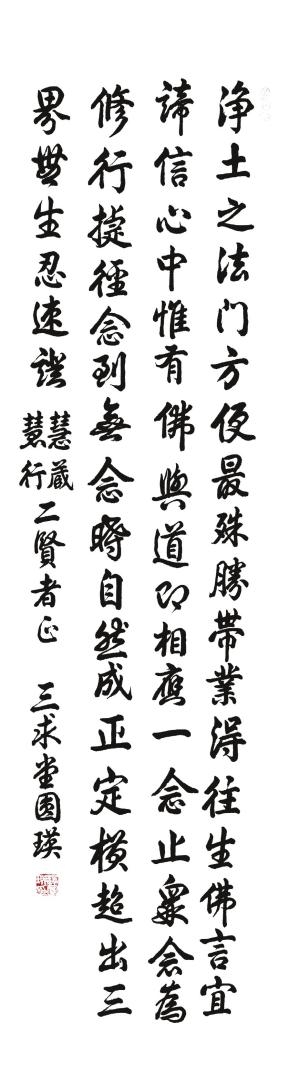 浄土之法门方便最殊勝帶業得往生佛言宜
諦信心中惟有佛與道即相應一念止衆念為
修行捷徑念到無念時自然成正定橫超出三
界無生忍速證
慧藏
慧行
二賢者正 三求堂圓瑛